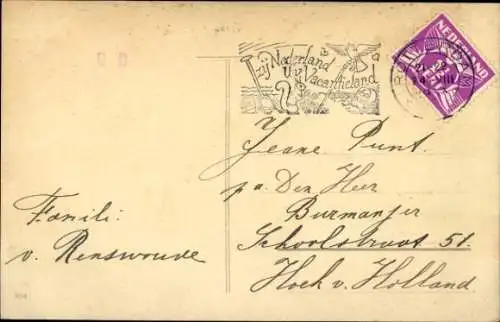 Zij Nederland
Uw Vacantieland
NEDERLAND
VIII
Jeane Punt.
p/a Den Heer
Burmanjer
Schoolstraat 51.
Hoek v. Holland.
Famili
v. Renswoude